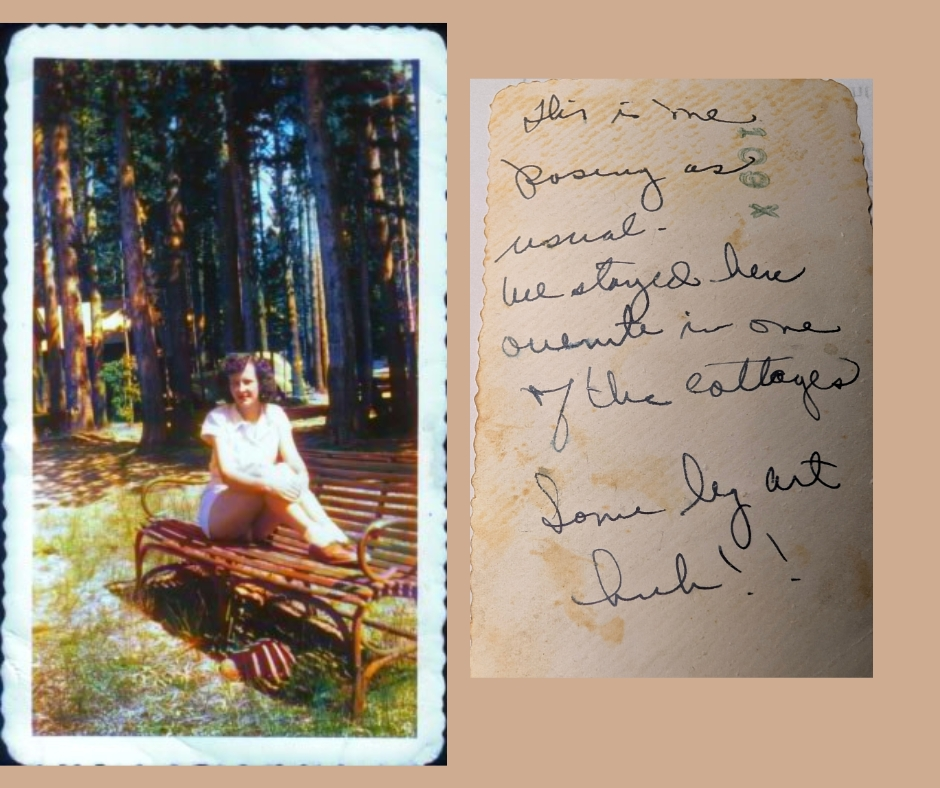 This is me
posing as
usual.
We stayed here
ovenite in one
of the cottages
Some leg art
huh!!
109 X